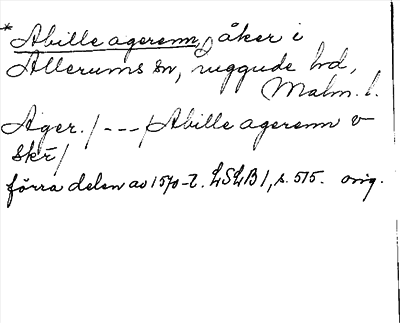 *Abille agerenn, åker i
Allerums sn, Luggude hd,
Malm. l.
Ager. / - - - / Abille agerenn v
skr /
förra delen av 1570-t. LSLB 1, s. 515. orig.